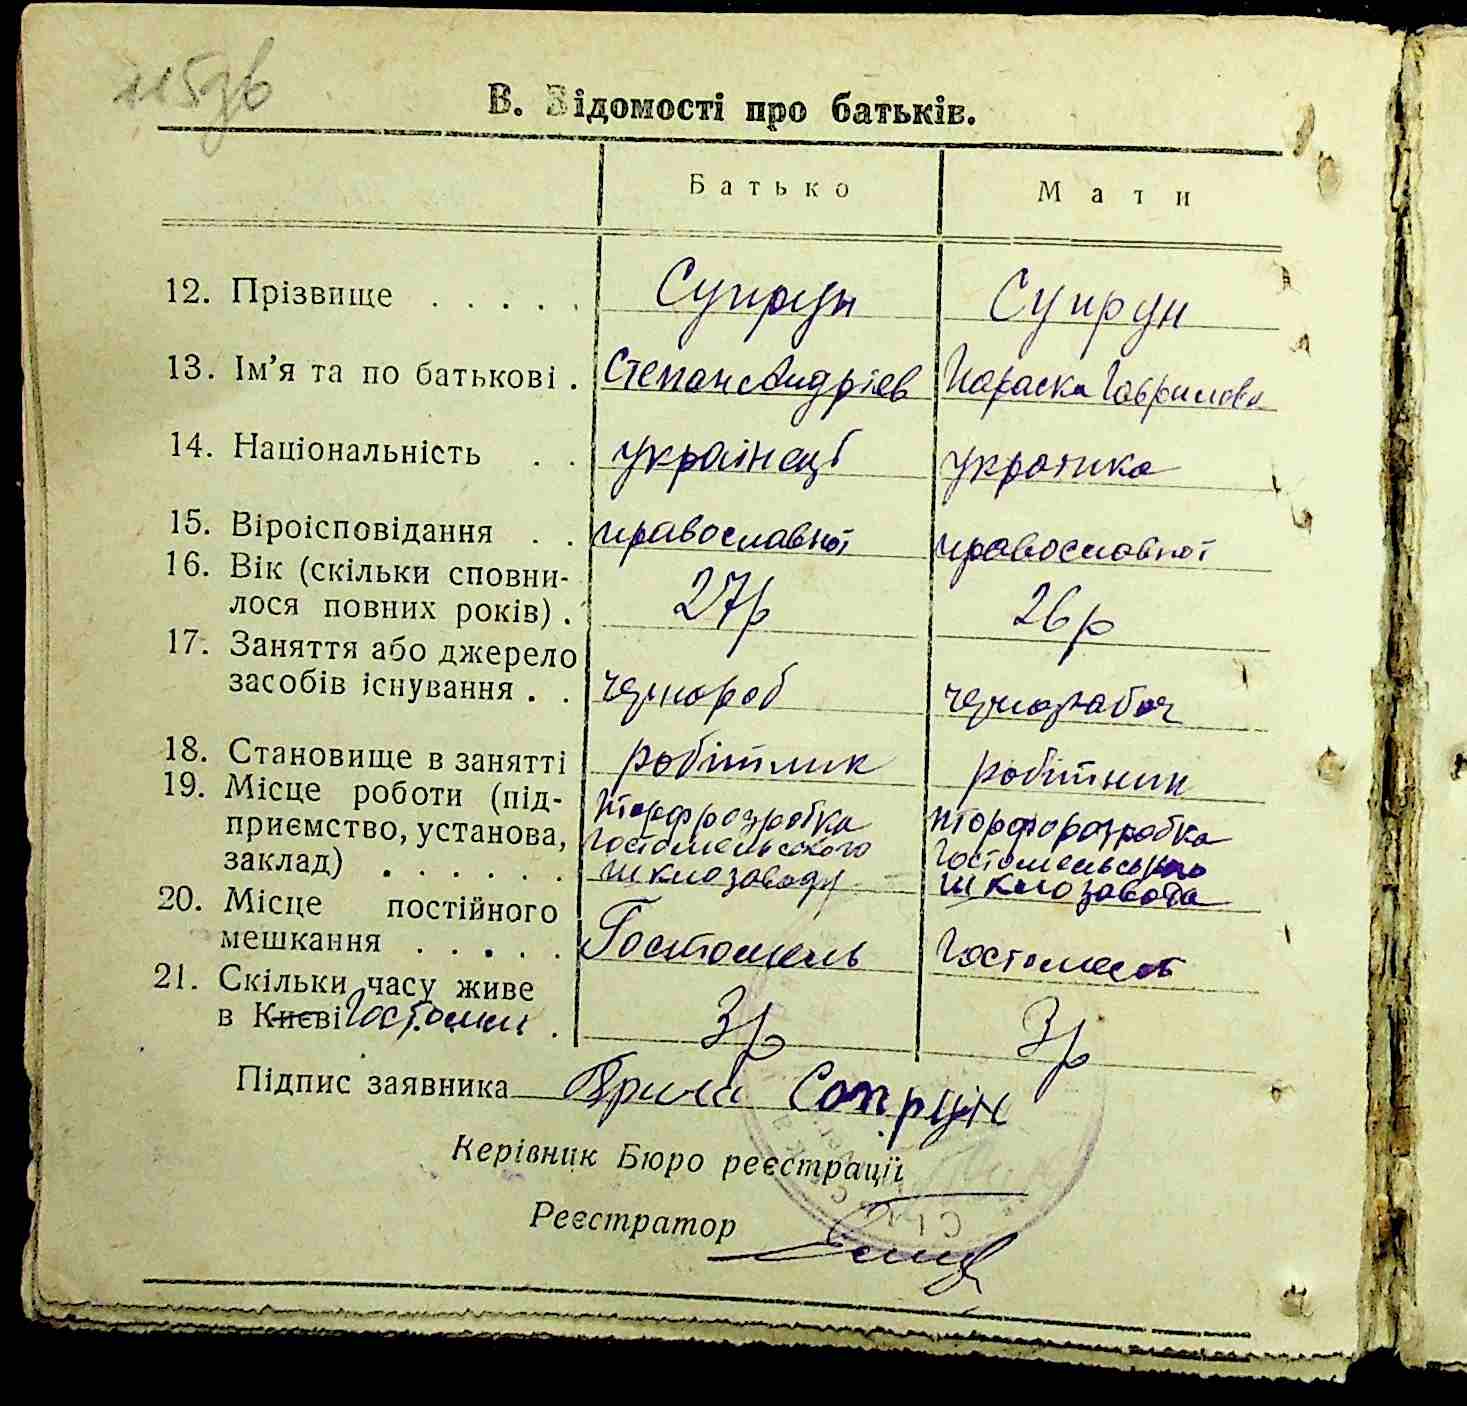 115зв
В. Відомості про батьків.
Батько Мати
12. Прізвище . . . . . Супрун Супрун
13. Ім’я та по батькові . Степан Андріев Параска Гаврилова
14. Національність . . українець украінка
15. Віроісповідання . . православної православної
16. Вік (скільки сповни-
лося повних років) . 27р 26р
17. Заняття або джерело
засобів існування . . чернороб чернорабоч
18. Становище в занятті робітник робітник
19. Місце роботи (під- торфрозробка торфорозробка
приємство, установа, Гостомельського Гостомельського
заклад) . . . . . . шклозаводу шклозавода
20. Місце постійного
мешкання . . . . . Гостомель Гостомель
21. Скільки часу живе
в Києві Гостомли . 3р 3р
Підпис заявника Супрун
Керівник Бюро реєстрації
Реєстратор